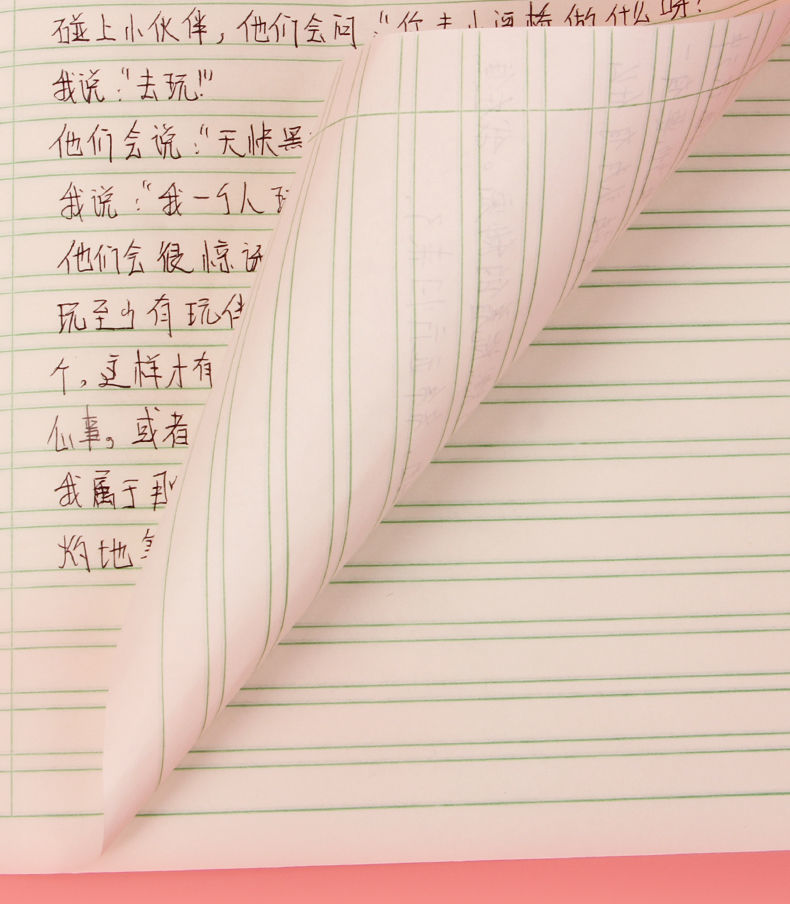 碰上小伙伴，他们会问："你去小酒桥做什么呀？
我说："去玩！"
他们会说："天快黑
我说："我一个人玩
他们会很惊讶
玩至少有玩伴
个，这样才有
么事。或者
我属于那
灼地